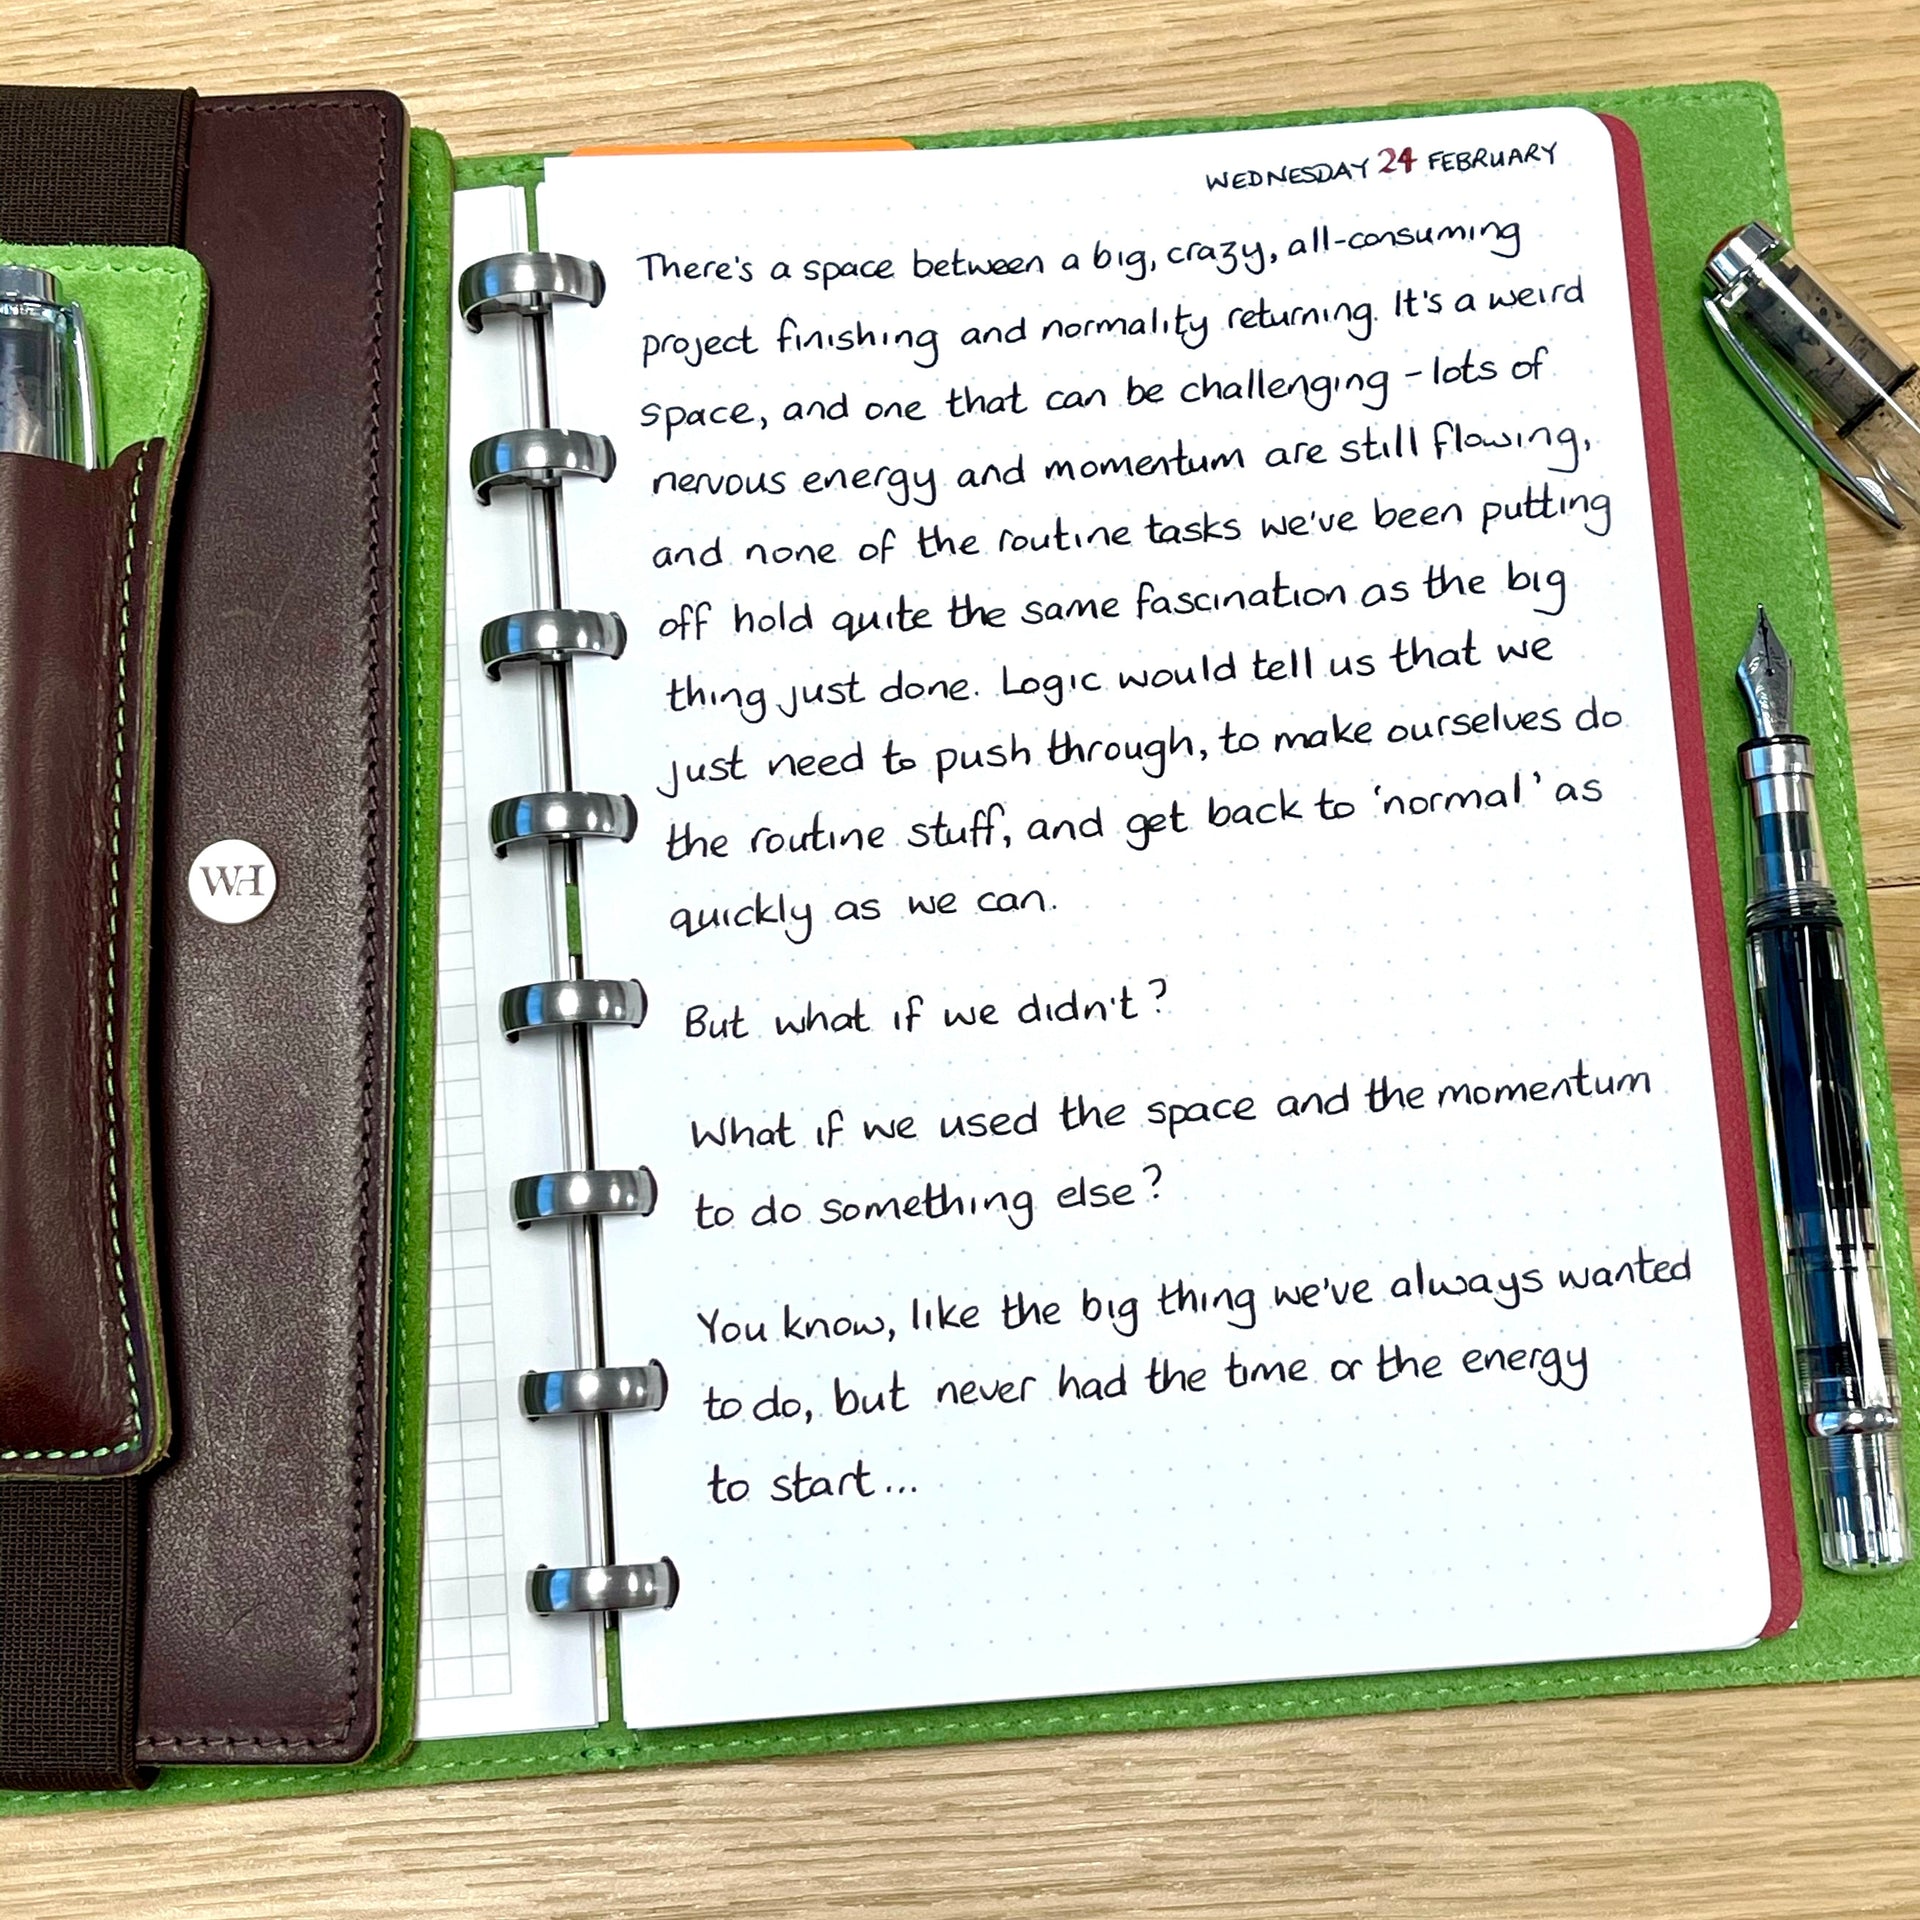 WEDNESDAY 24 FEBRUARY
There's a space between a big, crazy, all-consuming
project finishing and normality returning. It's a weird
space, and one that can be challenging - lots of
nervous energy and momentum are still flowing,
and none of the routine tasks we've been putting
off hold quite the same fascination as the big
thing just done. Logic would tell us that we
just need to push through, to make ourselves do
the routine stuff, and get back to 'normal' as
quickly as we can.
But what if we didn't?
What if we used the space and the momentum
to do something else?
You know, like the big thing we've always wanted
to do, but never had the time or the energy
to start...
WH